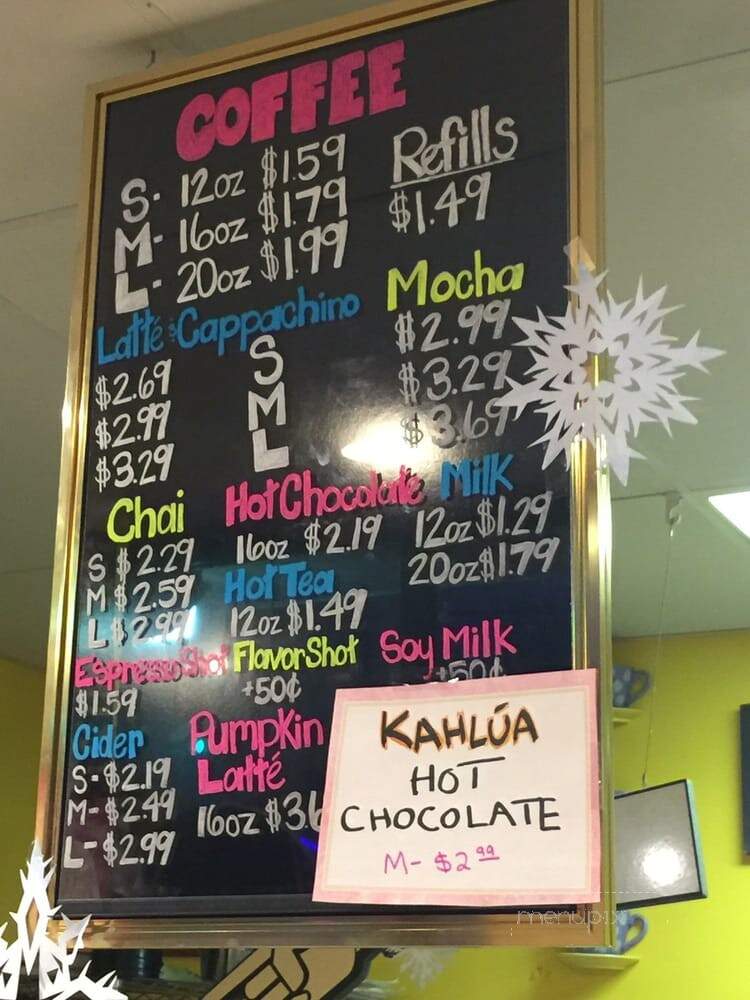 COFFEE
S- 12oz $1.59
M- 16oz $1.79
L- 20oz $1.99
Refills
$1.49
Latté & Cappachino
$2.69
$2.99
$3.29
S
M
L
Mocha
$2.99
$3.29
$3.69
Chai
S $2.29
M $2.59
L $2.99
Hot Chocolate
16oz $2.19
Milk
12oz $1.29
20oz $1.79
Hot Tea
12oz $1.49
Espresso Shot
$1.59
Flavor Shot
+50¢
Soy Milk
+50¢
Cider
S- $2.19
M- $2.49
L- $2.99
Pumpkin
Latté
16oz $3.6
KAHLÚA
HOT
CHOCOLATE
M- $2.99
menupix